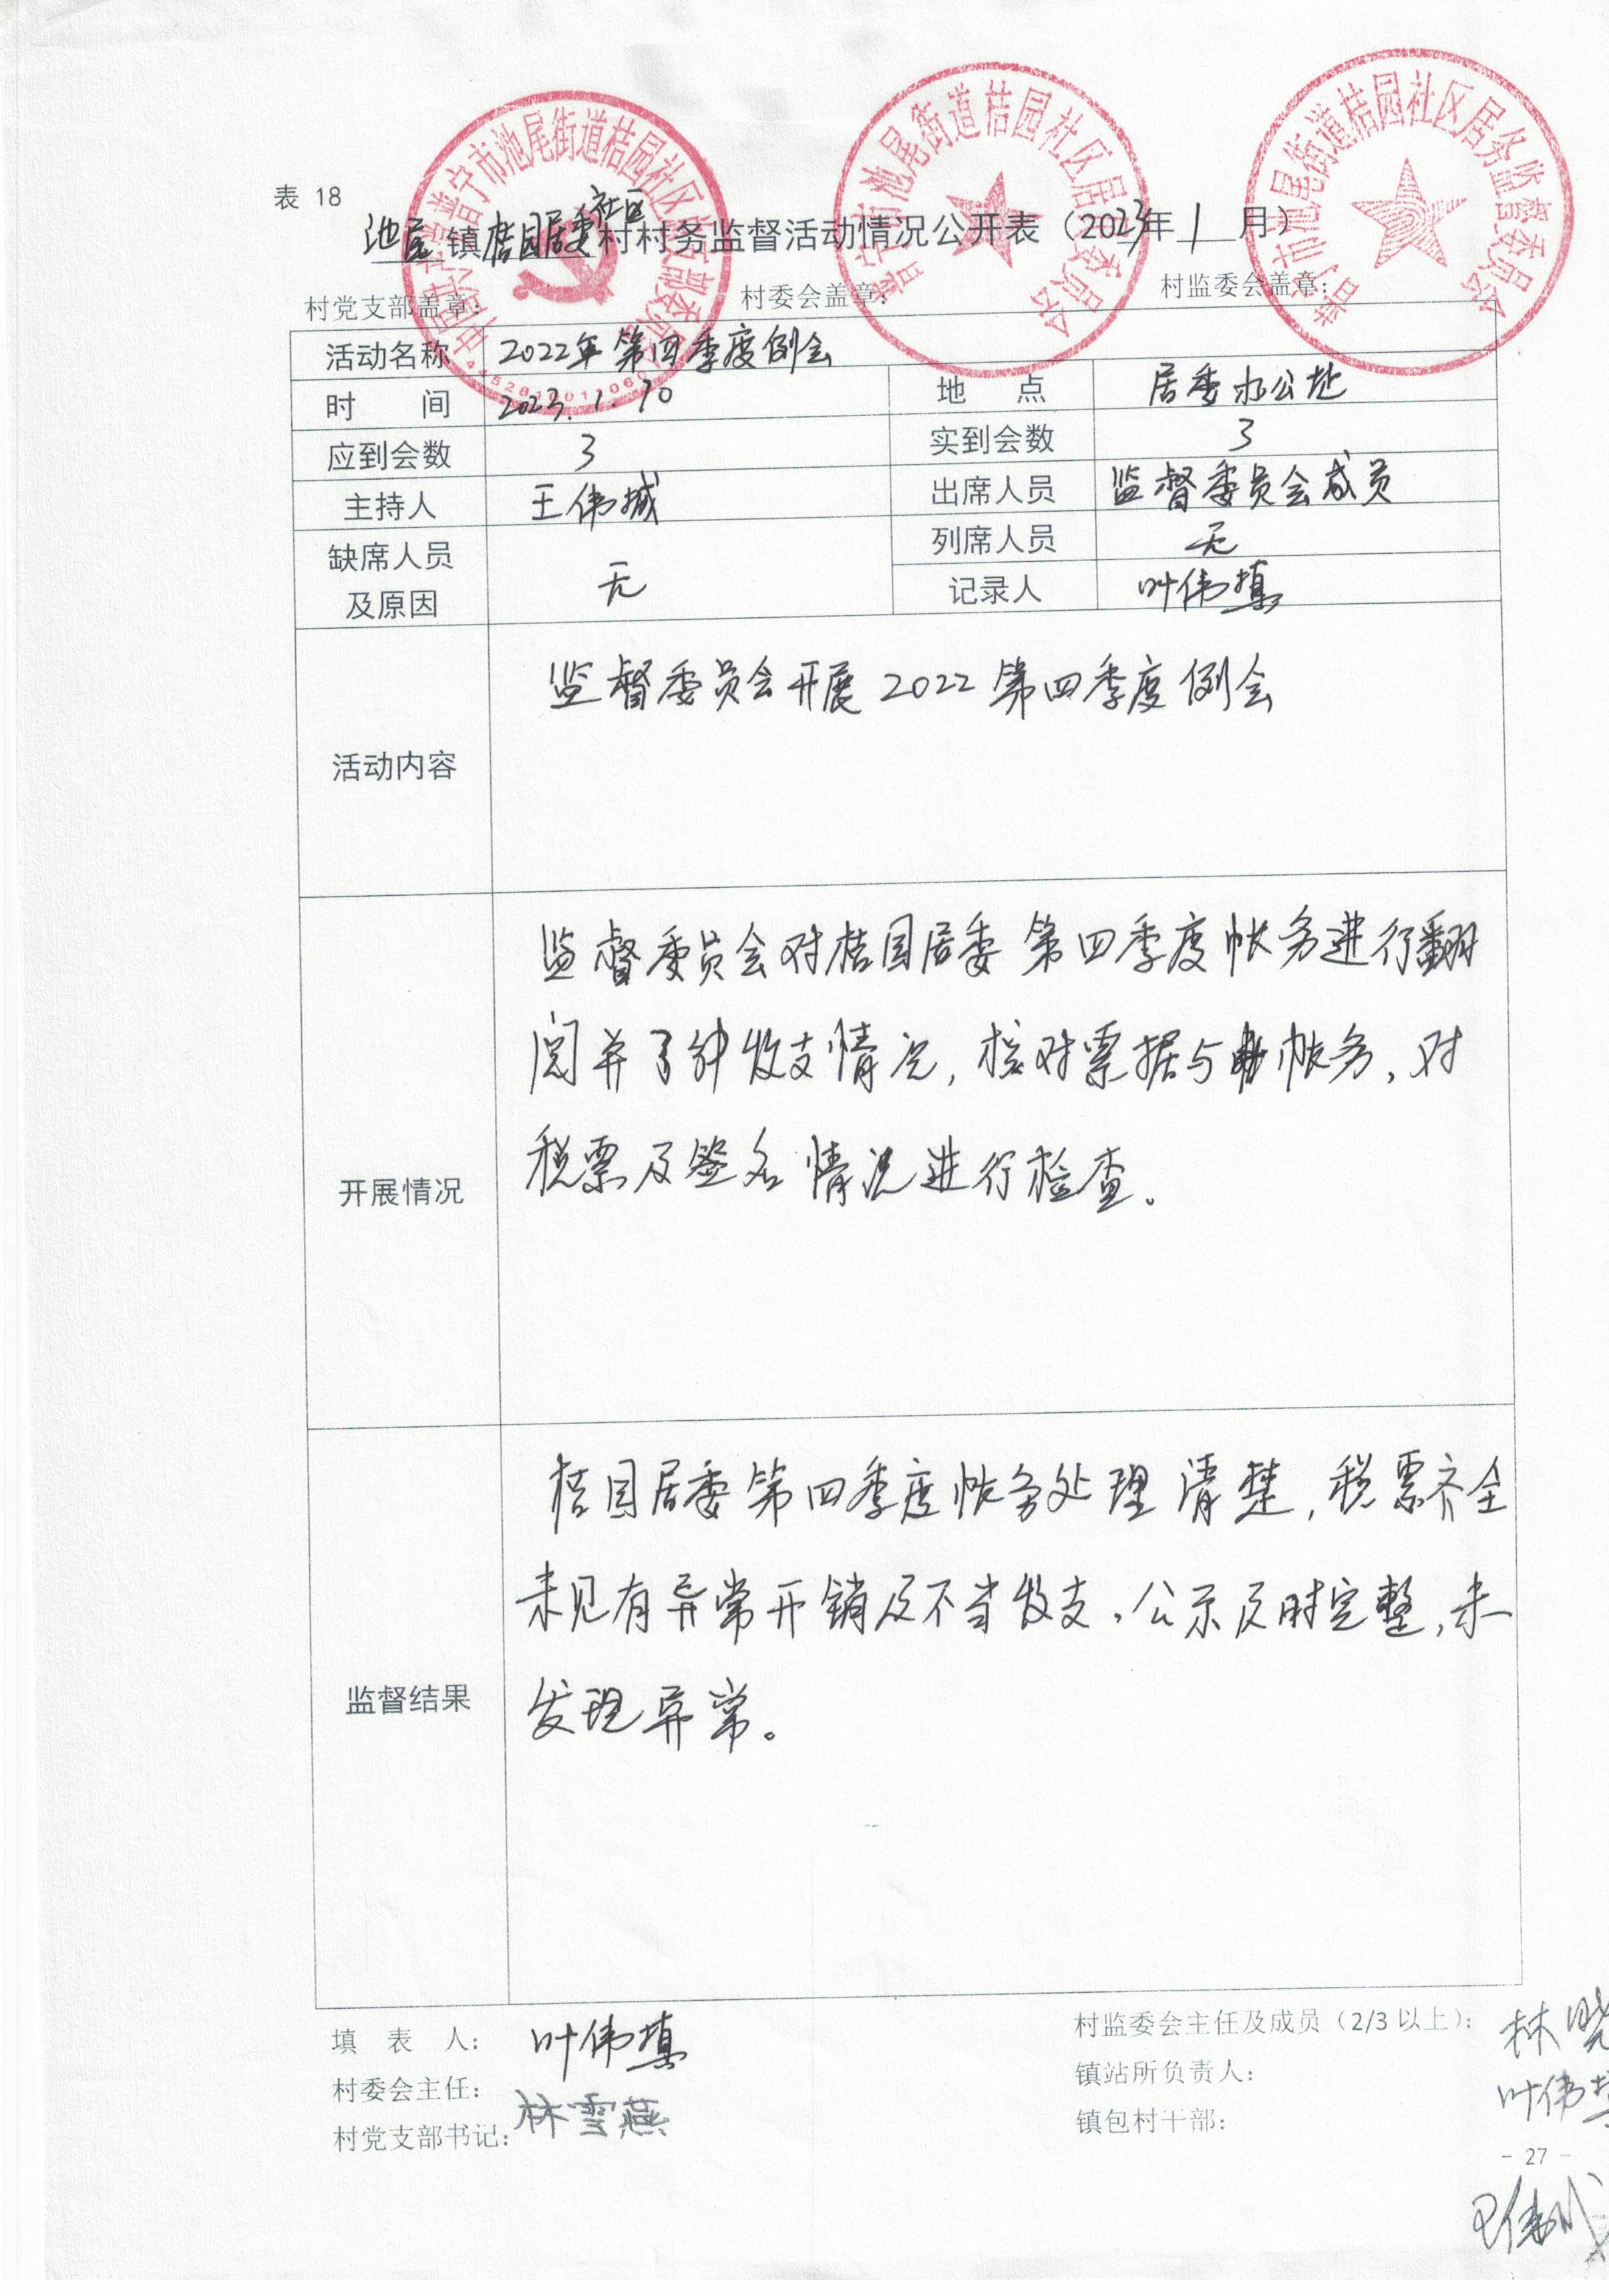 表 18
池尾镇桔园居委社区村村务监督活动情况公开表（2023年1月）
村党支部盖章： 村委会盖章： 村监委会盖章：
中国共产党普宁市池尾街道桔园社区支部委员会
普宁市池尾街道桔园社区居民委员会
普宁市池尾街道桔园社区居务监督委员会
活动名称 2022年第四季度例会
时 间 2023.1.10 地 点 居委办公址
应到会数 3 实到会数 3
主持人 王伟城 出席人员 监督委员会成员
缺席人员及原因 无 列席人员 无
记录人 叶伟填
活动内容 监督委员会开展2022第四季度例会
开展情况
监督委员会对桔园居委第四季度帐务进行翻
阅并了解收支情况，核对票据与帐务，对
税票及签名情况进行检查。
监督结果
桔园居委第四季度帐务处理清楚，税票齐全
未见有异常开销及不当收支，公示及时完整，未
发现异常。
填 表 人： 叶伟填
村委会主任：
村党支部书记： 林雪燕
村监委会主任及成员（2/3以上）： 林晓
镇站所负责人： 叶伟
镇包村干部：
- 27 -